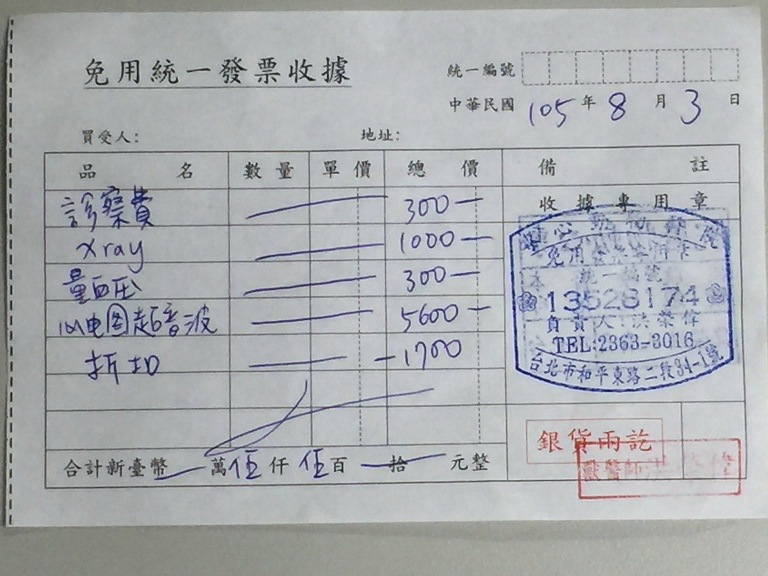 免用統一發票收據
統一編號
中華民國 105 年 8 月 3 日
買受人: 地址:
品名 數量 單價 總價 備註
收據專用章
診察費 300
xray 1000
量血压 300
心电图超音波 5600
折扣 -1700
免用
統一編號
13528174
負責人:洪榮偉
TEL:2363-3016
台北市和平東路二段34-1號
銀貨兩訖
獸醫師洪
合計新臺幣 萬伍仟伍百 拾 元整